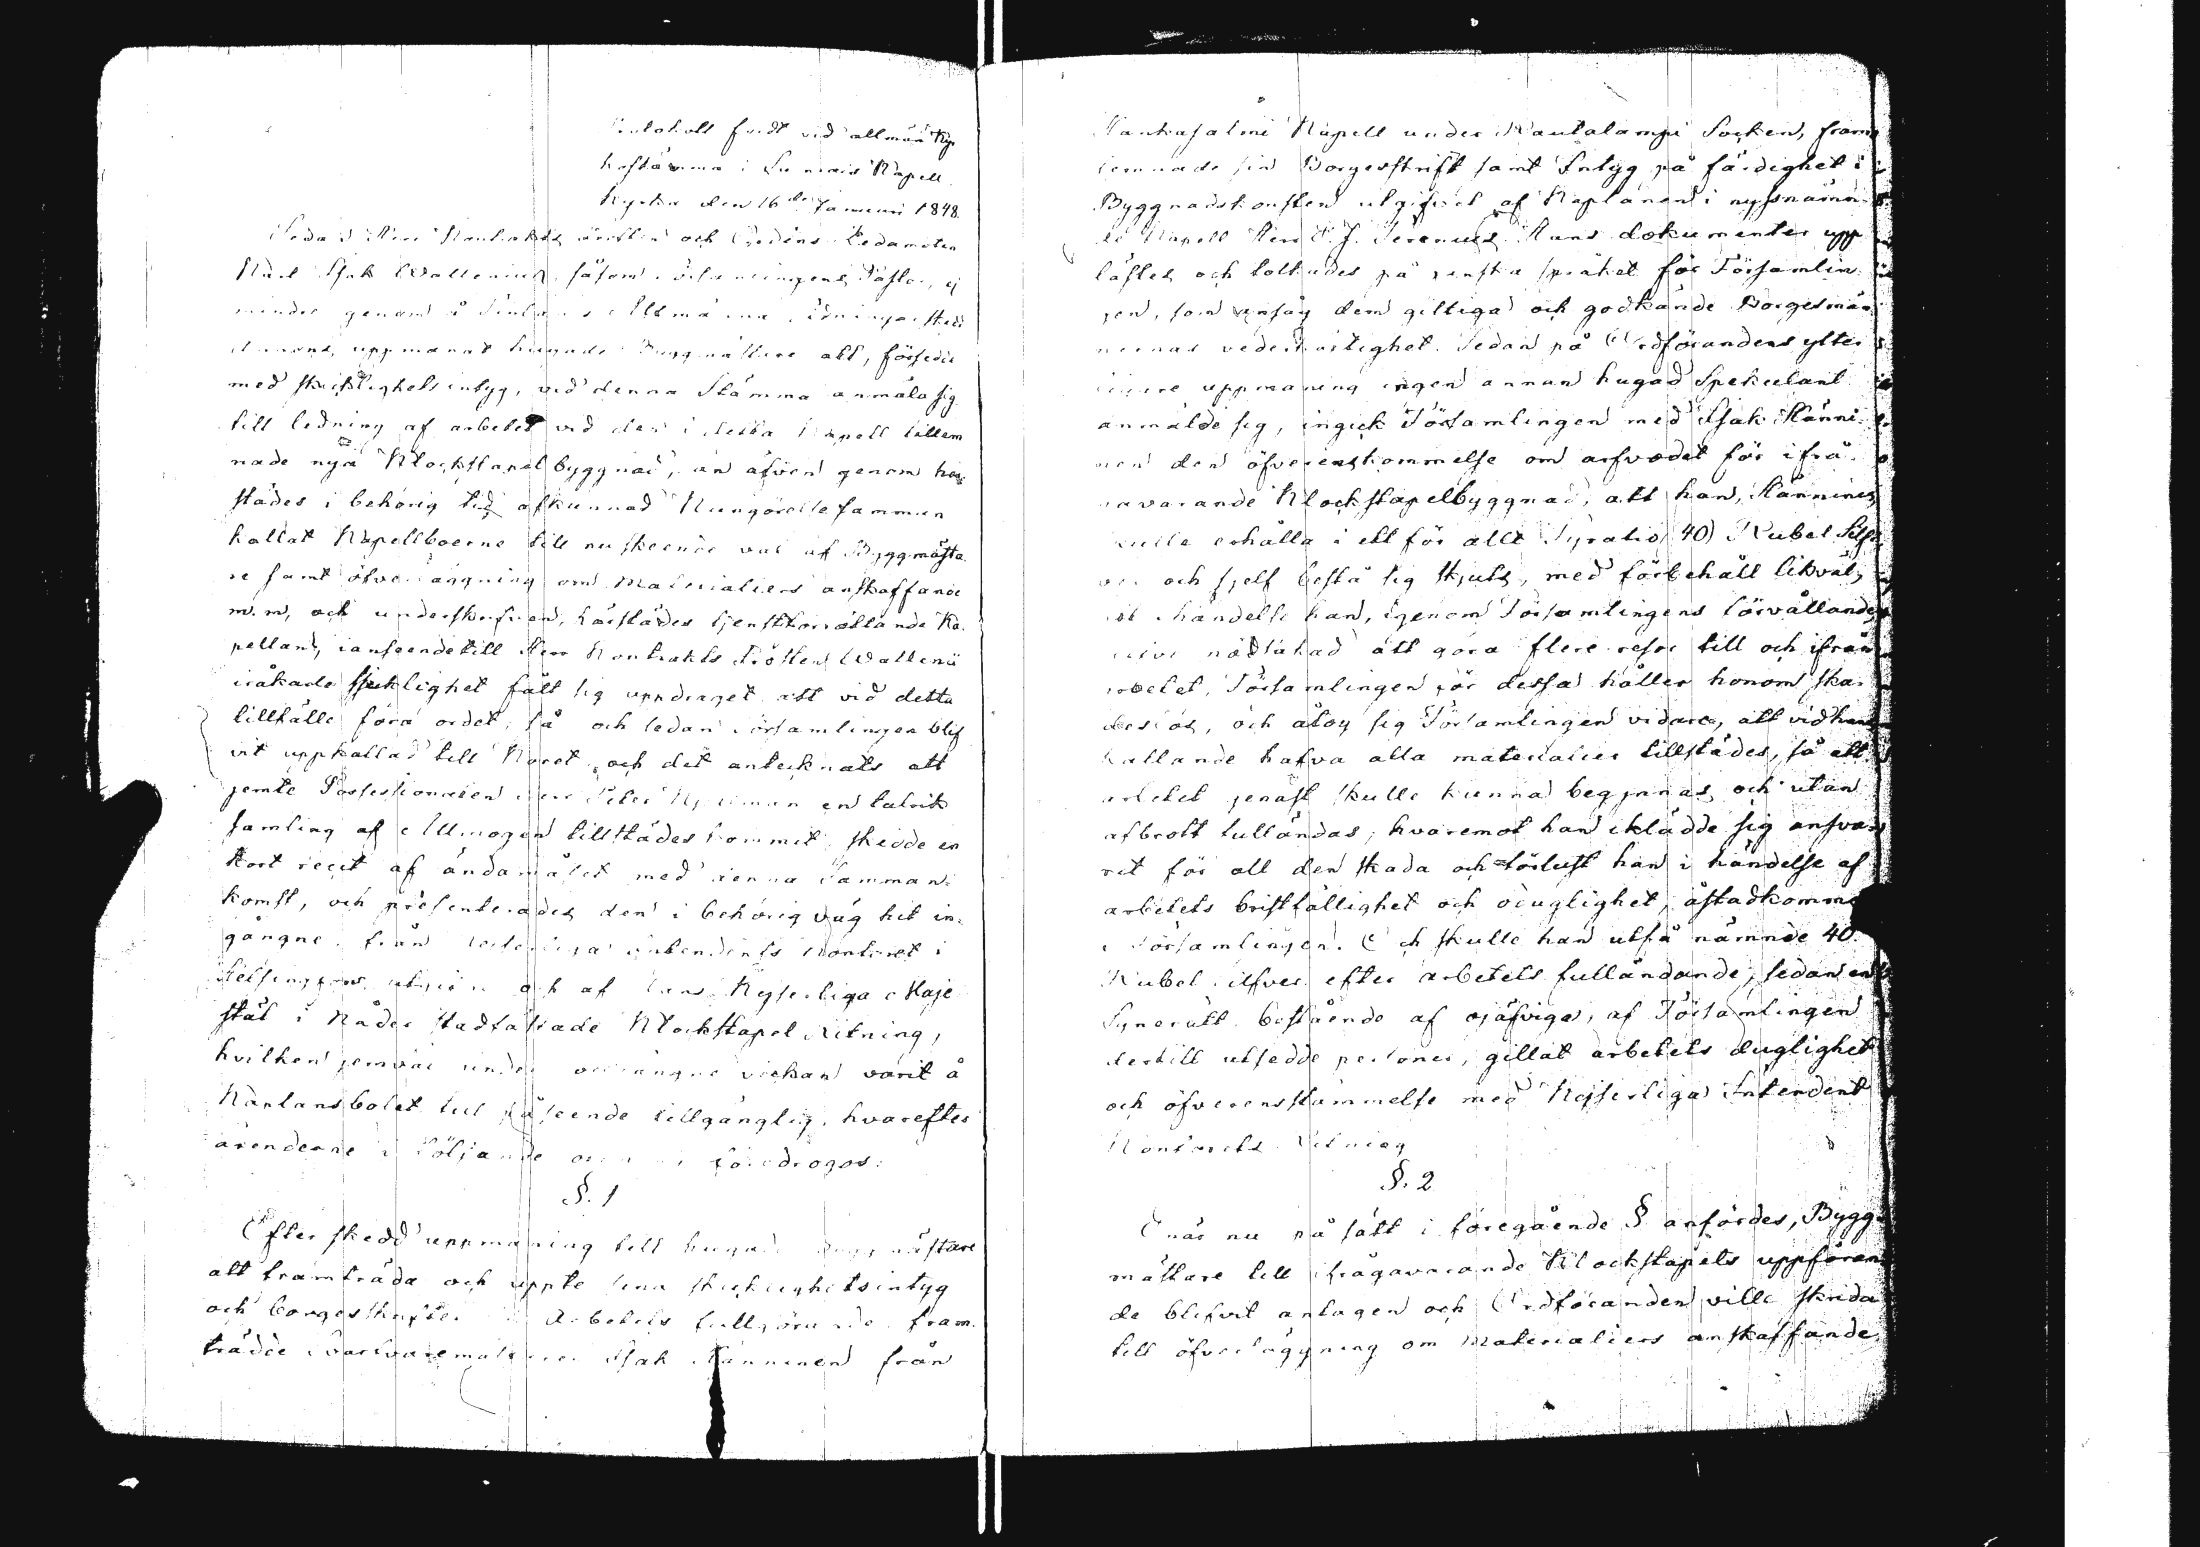 Protokoll fördt vid allmän Kyr
kostämma i Sumiais Kapell
kyrka den 16de Januari 1848.
Sedan Herr Kontrakts Prosten och Ordens Ledamoten
Karl Isak Wallenius, såsom Församlingens Pastor, ej
mindre genom i Finlands Allmänna Tidning
uppmanat hugade Byggmästare att, försedde
med skicklighetsintyg, vid denna Stämma anmäla sig
till ledning af arbetet vid den i detta Kapell tillem
nade nya Klockstapelbyggnad, än äfven genom här
städes i behörig tid afkunnad Kungörelse samman
kallat Kapellboerne till nu skeende val af Byggmästa
re samt öfverläggning om Materialiers anskaffande
m.m, och underskrifven, härstädes tjenstförrättande Ka
pellan, i anseende till Herr Kontrakts Prosten Wallenii
iråkade sjuklighet fått sig uppdraget att vid detta
tillfälle föra ordet; så och sedan Församlingen blif
vit uppkallad till Koret, och det antecknats att
jemte Possessionaten Herr Peter en talrik
samling af Allmogen tillstädeskommit, skedde en
kort recit af ändamålet med denna Samman
komst, och presenterades den i behörig väg hit in
gångne, från Kejserliga Intendents Kontoret i
Helsingfors utgifne och af Hans Kejserliga Maje
stät i Nåder stadfästade Klockstapel Ritning,
hvilken jemväl under veckan varit å
Kaplansbolet till påseende tillgänglig, hvarefter
ärenderne i följande ordning föredrogos:
§. 1
Efter skedd uppmaning till hugade Byggmästare
att framträda och uppte sina skicklighetsintyg
och borgesskrifter Arbetets fullgörande fram
trädde Isak Hänninen från
Hankasalmi Kapell under Rautalampi Socken, fram
lemnade sin Borgesskrift samt Intyg på färdighet i
Byggnadskonsten utgifvet af Kaplanen i nyssnämn
de Kapell Herr Hans dokumenter upp
lästes och tolkades på finska språket för Församlin
gen, som ansåg dem giltiga och godkände Borgesmän
nernas vederhäftighet. Sedan på Ordförandens ytter
ligare uppmaning ingen annan hugad Spekulant
anmälde sig, ingick Församlingen med Isak Hänni
nen den öfverenskommelse om arfvodet för ifrå
gavarande Klockstapelbyggnad, att han, Hänninen,
skulle erhålla i ett för allt Fyratio (40) Rubel Silf
ver och sjelf bestå sig skjuts, med förbehåll likväl,
att i händelse han, genom Församlingens förvållande,
blifver nödsakad att göra flere resor till och ifrån
arbetet, Församlingen för dessa håller honom ska
deslös, och åtog sig Församlingen vidare, att vid han
kallande hafva alla materialier tillstädes, så att
arbetet genast skulle kunna begynnas och utan
afbrott fulländas; hvaremot han iklädde sig ansva
ret för all den skada och förlust han i händelse af
arbetets bristfällighet och oduglighet, åstadkomme
i Församlingen. Och skulle han utfå nämnde 40
Rubel Silfver efter arbetets fulländande, sedan en
Synerätt bestående af ojäfviga, af Församlingen
dertill utsedde personer, gillat arbetets duglighet
och öfverensstämmelse med Kejserliga Intendent
Kontorets Ritning
§. 2
Enär nu på sätt i föregående § anfördes, Bygg
mästare till ifrågavarande Klockstapels uppföran
de blifvit antagen och Ordföranden ville skrida
till öfverläggning om Materialiers anskaffande,